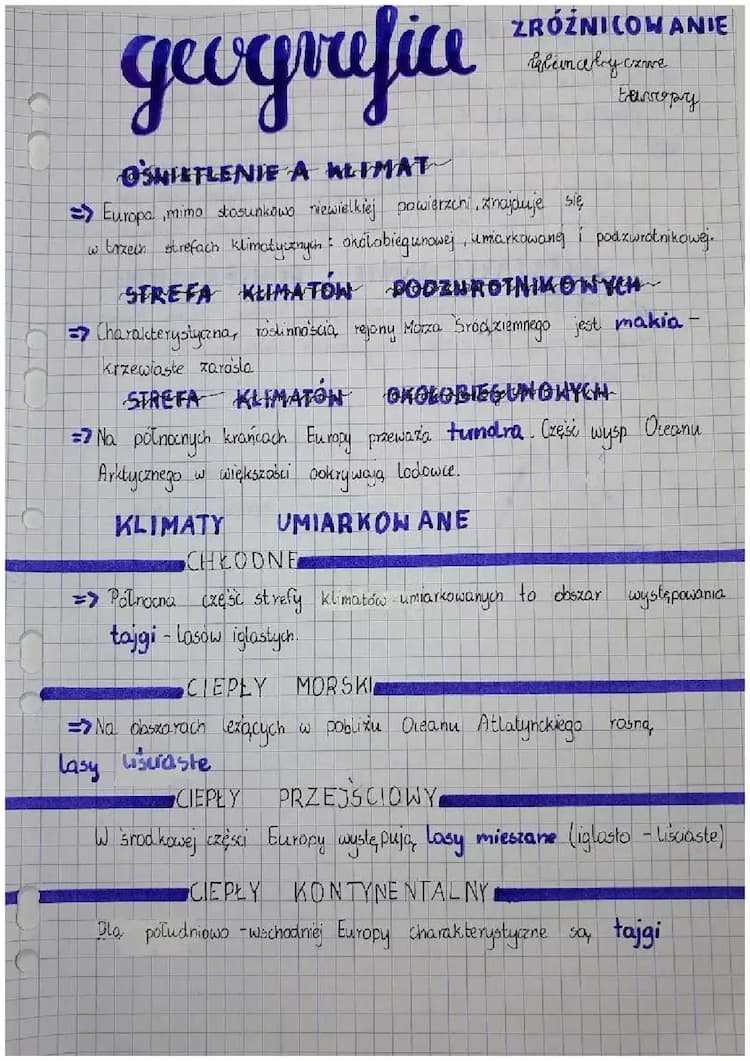 geografia
ZRÓŻNICOWANIE
klimatyczne
Europy
OŚWIETLENIE A KLIMAT
=> Europa, mimo stosunkowo niewielkiej powierzchni, znajduje się
w trzech strefach klimatycznych: okołobiegunowej, umiarkowanej i podzwrotnikowej.
STREFA KLIMATÓW PODZWROTNIKOWYCH
=> Charakterystyczną roślinnością rejony Morza Śródziemnego jest makia -
krzewiaste zarośla
STREFA KLIMATÓW OKOŁOBIEGUNOWYCH
=> Na północnych krańcach Europy przeważa tundra. Część wysp Oceanu
Arktycznego w większości pokrywają lodowce.
KLIMATY UMIARKOWANE
CHŁODNE
=> Północna część strefy klimatów umiarkowanych to obszar występowania
tajgi - lasów iglastych.
CIEPŁY MORSKI
=> Na obszarach leżących w pobliżu Oceanu Atlatynckiego rosną
lasy liściaste
CIEPŁY PRZEJŚCIOWY
W środkowej części Europy występują lasy mieszane (iglasto - liściaste)
CIEPŁY KONTYNENTALNY
Dla południowo - wschodniej Europy charakterystyczne są tajgi